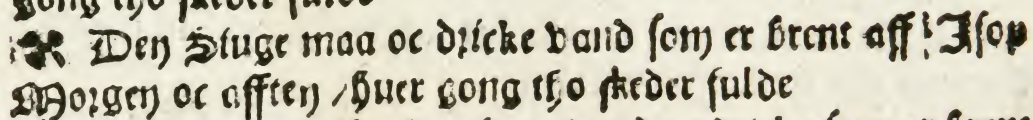 gong tho skeder fulde
☙ Den Siuge maa oc dricke vand som er brent aff Isop
Morgen oc afften / huer gong tho skeder fulde